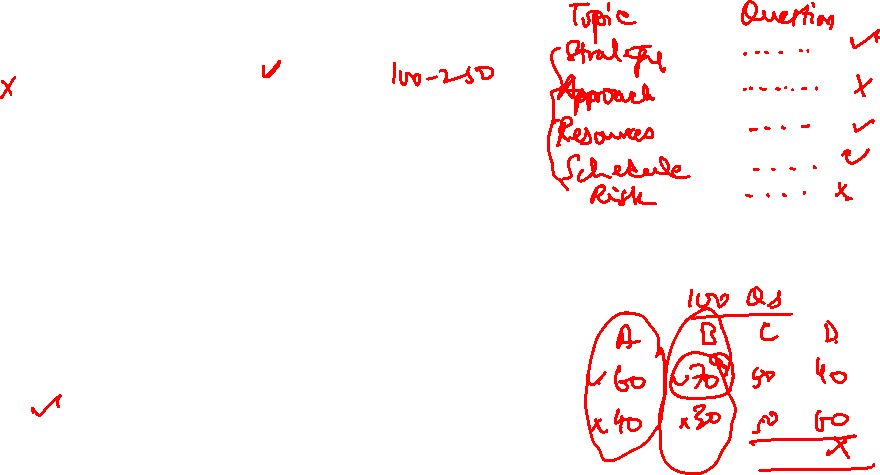 Topic Question
Strategy ..... ✓
✓ 100-250
x Approach ...... x
Resources .... ✓
Schedule ..... ✓
Risk .... x
100 Qs
A B C D
✓60 ✓70 50 40
✓
x40 x30 50 60
x